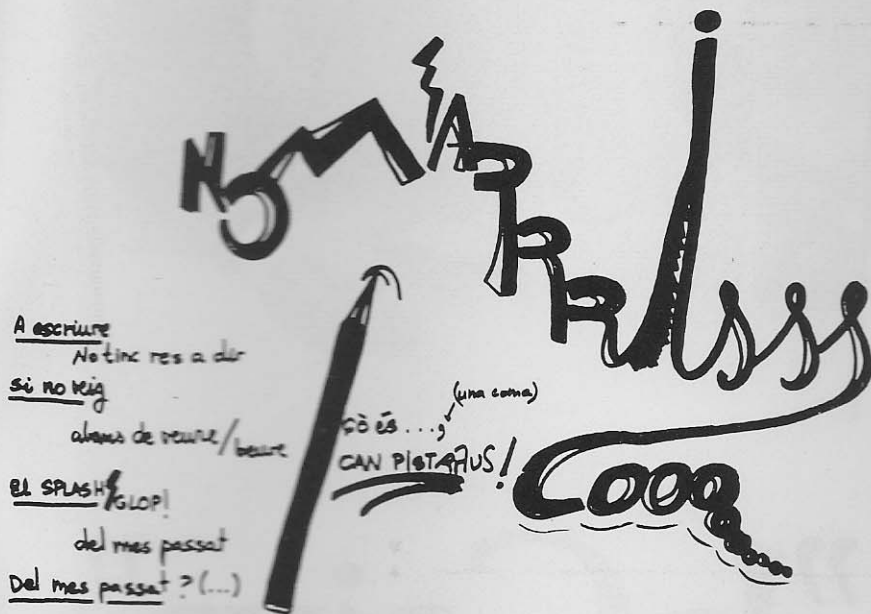 No M'ARRRisss
Cooo
A escriure
No tinc res a dir
si no veig
abans de veure/beure
El SPLASH/GLOP!
del mes passat
Del mes passat? (...)
(una coma)
Çò és...,
CAN PISTRAUS!